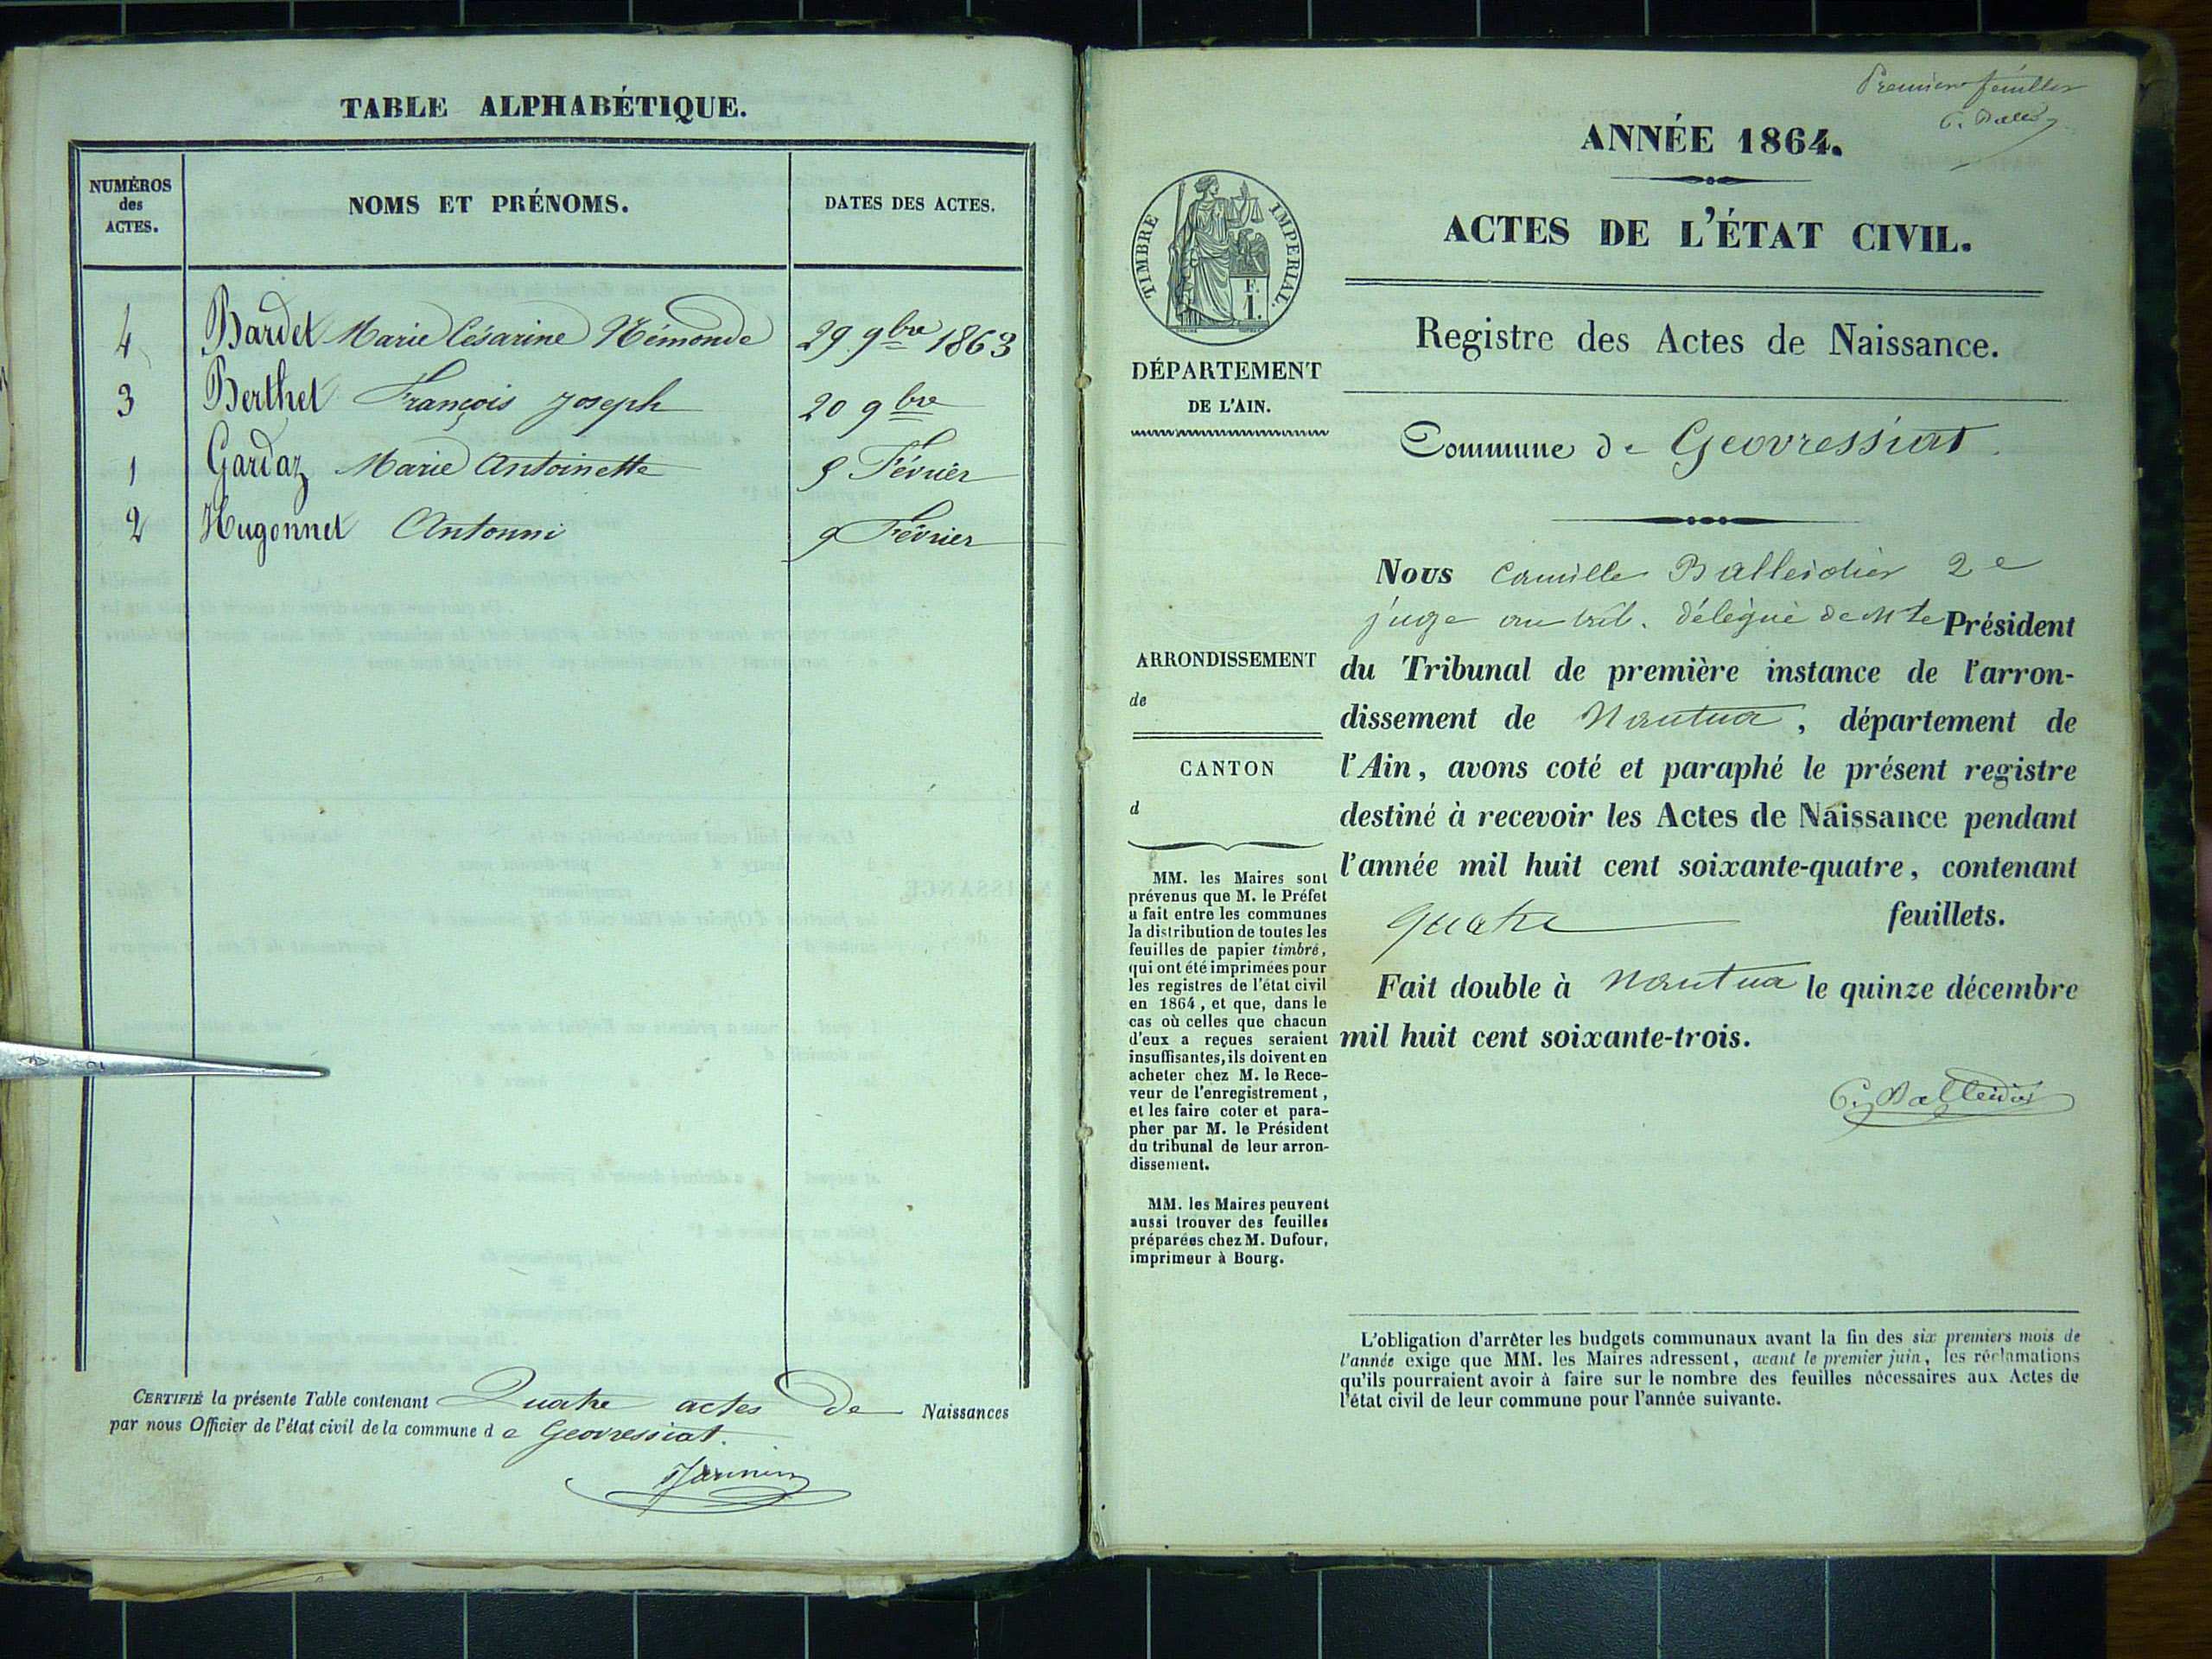 TABLE ALPHABÉTIQUE.
NUMÉROS des ACTES.
NOMS ET PRÉNOMS.
DATES DES ACTES.
4 Bardet Marie Césarine Némonde 29 9bre 1863
3 Berthet François Joseph 20 9bre
1 Gardaz Marie Antoinette Février
2 Hugonnet Antonni 9 Février
CERTIFIÉ la présente Table contenant Quatre actes de Naissances
par nous Officier de l'état civil de la commune de Geovressiat.
Premier feuillet
ANNÉE 1864.
ACTES DE L'ÉTAT CIVIL.
TIMBRE IMPERIAL.
F.
1.
Registre des Actes de Naissance.
DÉPARTEMENT
DE L'AIN.
Commune de Geovressiat
ARRONDISSEMENT
de
CANTON
d
MM. les Maires sont
prévenus que M. le Préfet
a fait entre les communes
la distribution de toutes les
feuilles de papier timbré,
qui ont été imprimées pour
les registres de l'état civil
en 1864, et que, dans le
cas où celles que chacun
d'eux a reçues seraient
insuffisantes, ils doivent en
acheter chez M. le Rece-
veur de l'enregistrement,
et les faire coter et para-
pher par M. le Président
du tribunal de leur arron-
dissement.
MM. les Maires peuvent
aussi trouver des feuilles
préparées chez M. Dufour,
imprimeur à Bourg.
Nous Camille Balleidier 2e
juge au trib. délégué de Mr le Président
du Tribunal de première instance de l'arron-
dissement de Nantua, département de
l'Ain, avons coté et paraphé le présent registre
destiné à recevoir les Actes de Naissance pendant
l'année mil huit cent soixante-quatre, contenant
quatre feuillets.
Fait double à Nantua le quinze décembre
mil huit cent soixante-trois.
C. Balleidier
L'obligation d'arrêter les budgets communaux avant la fin des six premiers mois de
l'année exige que MM. les Maires adressent, avant le premier juin, les réclamations
qu'ils pourraient avoir à faire sur le nombre des feuilles nécessaires aux Actes de
l'état civil de leur commune pour l'année suivante.